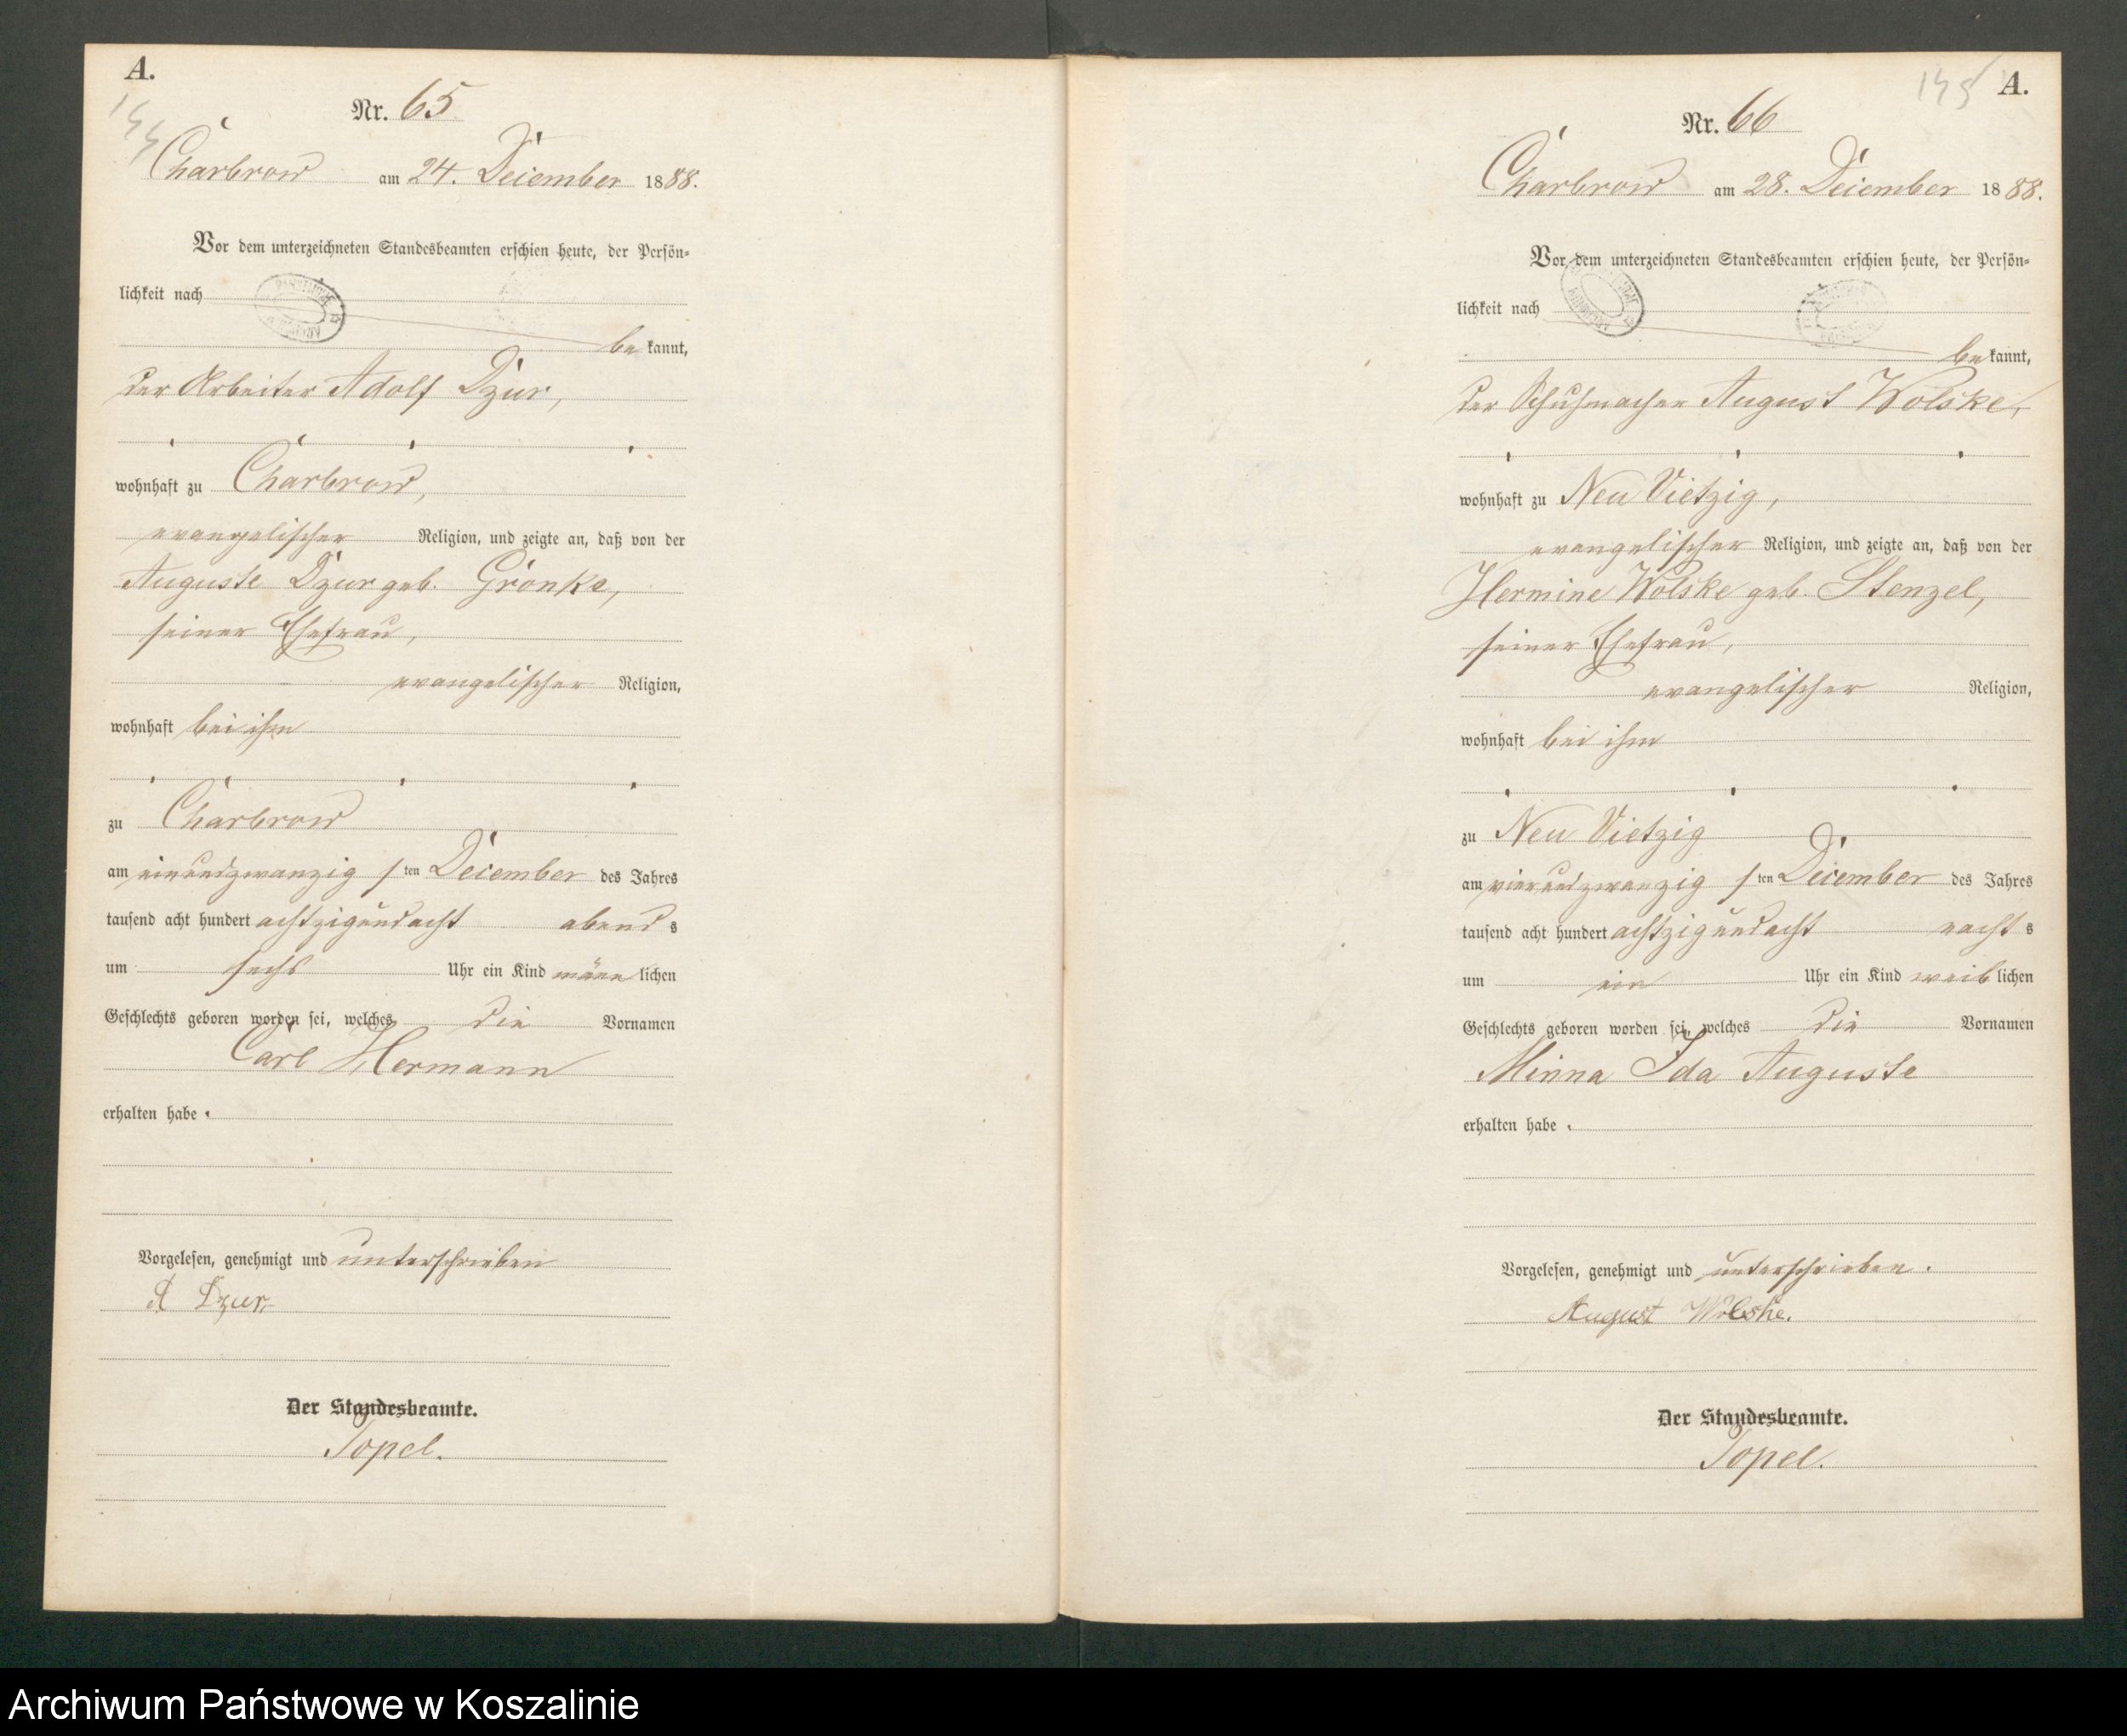 A.
144
Nr. 65
Charbrow am 24. December 1888.
Vor dem unterzeichneten Standesbeamten erschien heute, der Persön-
lichkeit nach
be kannt,
der Arbeiter Adolf Dzur,
wohnhaft zu Charbrow,
evangelischer Religion, und zeigte an, daß von der
Auguste Dzur geb. Gronke,
seiner Ehefrau,
evangelischer Religion,
wohnhaft bei ihm
zu Charbrow
am einundzwanzig ten December des Jahres
tausend acht hundert achtzigundacht abend s
um sechs Uhr ein Kind männ lichen
Geschlechts geboren worden sei, welches die Vornamen
Carl Hermann
erhalten habe.
Vorgelesen, genehmigt und unterschrieben
A Dzur
Der Standesbeamte.
Topel.
145 A.
Nr. 66
Charbrow am 28. December 1888.
Vor dem unterzeichneten Standesbeamten erschien heute, der Persön-
lichkeit nach
be kannt,
der Schuhmacher August Wolske,
wohnhaft zu Neu Vietzig,
evangelischer Religion, und zeigte an, daß von der
Hermine Wolske geb. Stenzel,
seiner Ehefrau,
evangelischer Religion,
wohnhaft bei ihm
zu Neu Vietzig
am vierundzwanzig ten December des Jahres
tausend acht hundert achtzigundacht nacht s
um ein Uhr ein Kind weib lichen
Geschlechts geboren worden sei, welches die Vornamen
Minna Ida Auguste
erhalten habe.
Vorgelesen, genehmigt und unterschrieben.
August Wolske.
Der Standesbeamte.
Topel.
Archiwum Państwowe w Koszalinie